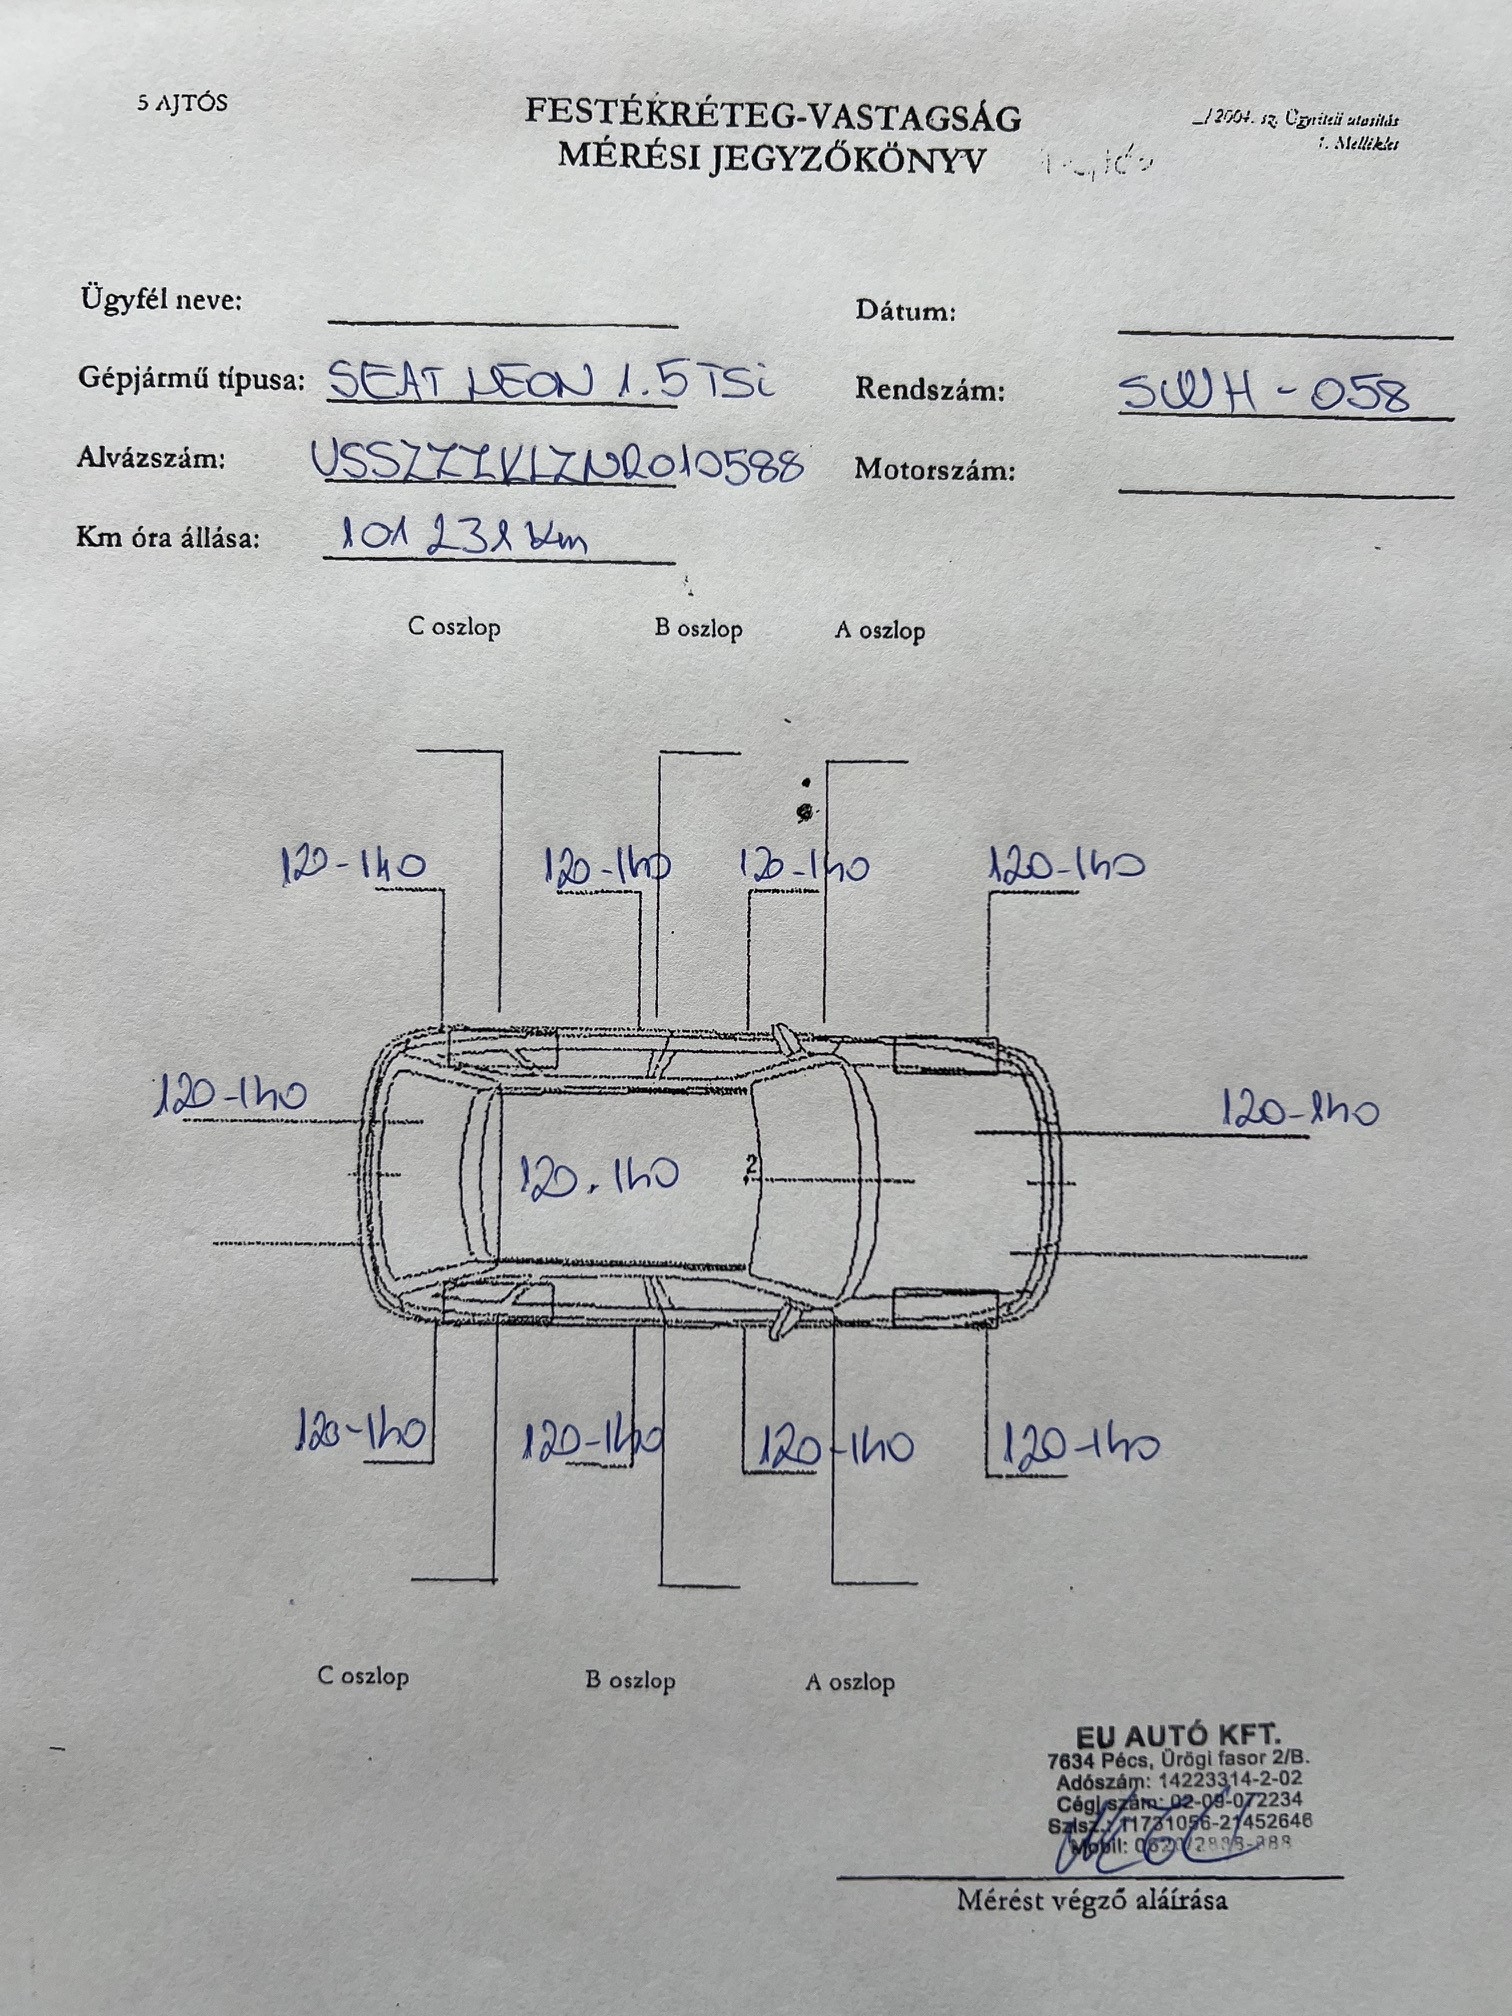 5 AJTÓS
FESTÉKRÉTEG-VASTAGSÁG
MÉRÉSI JEGYZŐKÖNYV
_/2004. sz. Ügyviteli utasítás
1. Melléklet
Ügyfél neve:
Dátum:
Gépjármű típusa: SEAT LEON 1.5 TSi
Rendszám: SWH-058
Alvázszám: VSSZZZKLZNR010588
Motorszám:
Km óra állása: 101 231 km
C oszlop B oszlop A oszlop
120-140 120-140 120-140 120-140
120-140 120-140
120-140 2
120-140 120-140 120-140 120-140
C oszlop B oszlop A oszlop
EU AUTÓ KFT.
7634 Pécs, Ürögi fasor 2/B.
Adószám: 14223314-2-02
Cégj.szám: 02-09-072234
Szlsz.: 11731056-21452646
Mobil:
Mérést végző aláírása